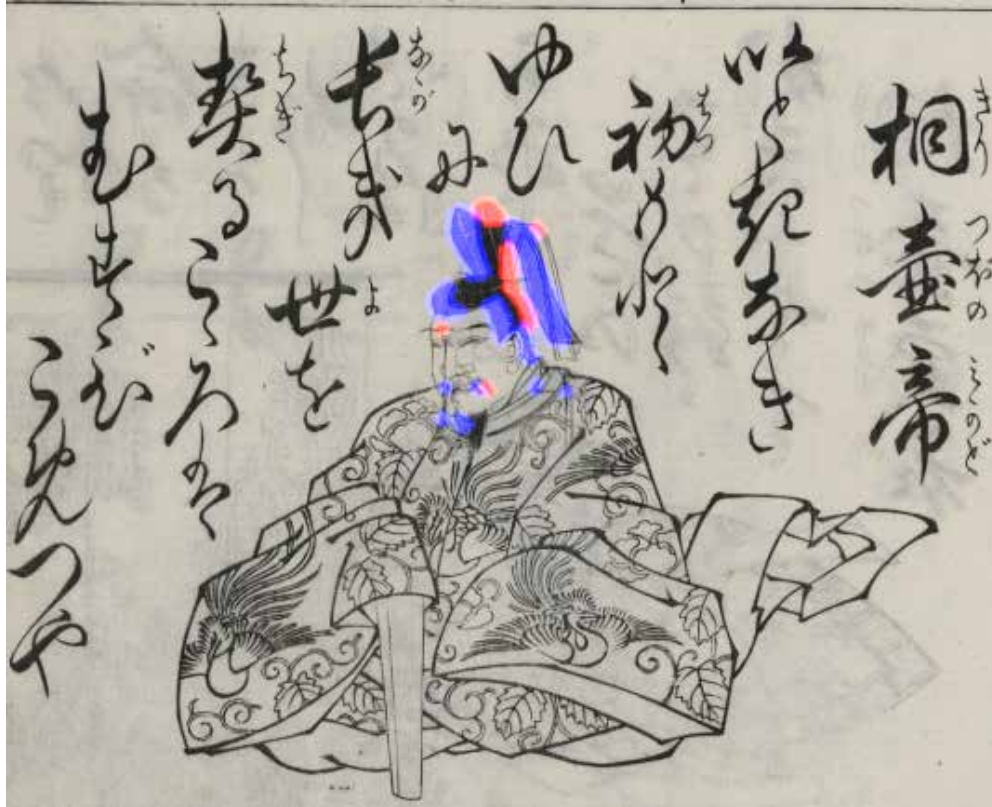 桐壷帝
いときなき
初もと
ゆひ
に
長き
世を
契るこゝろは
むすび
こめつや